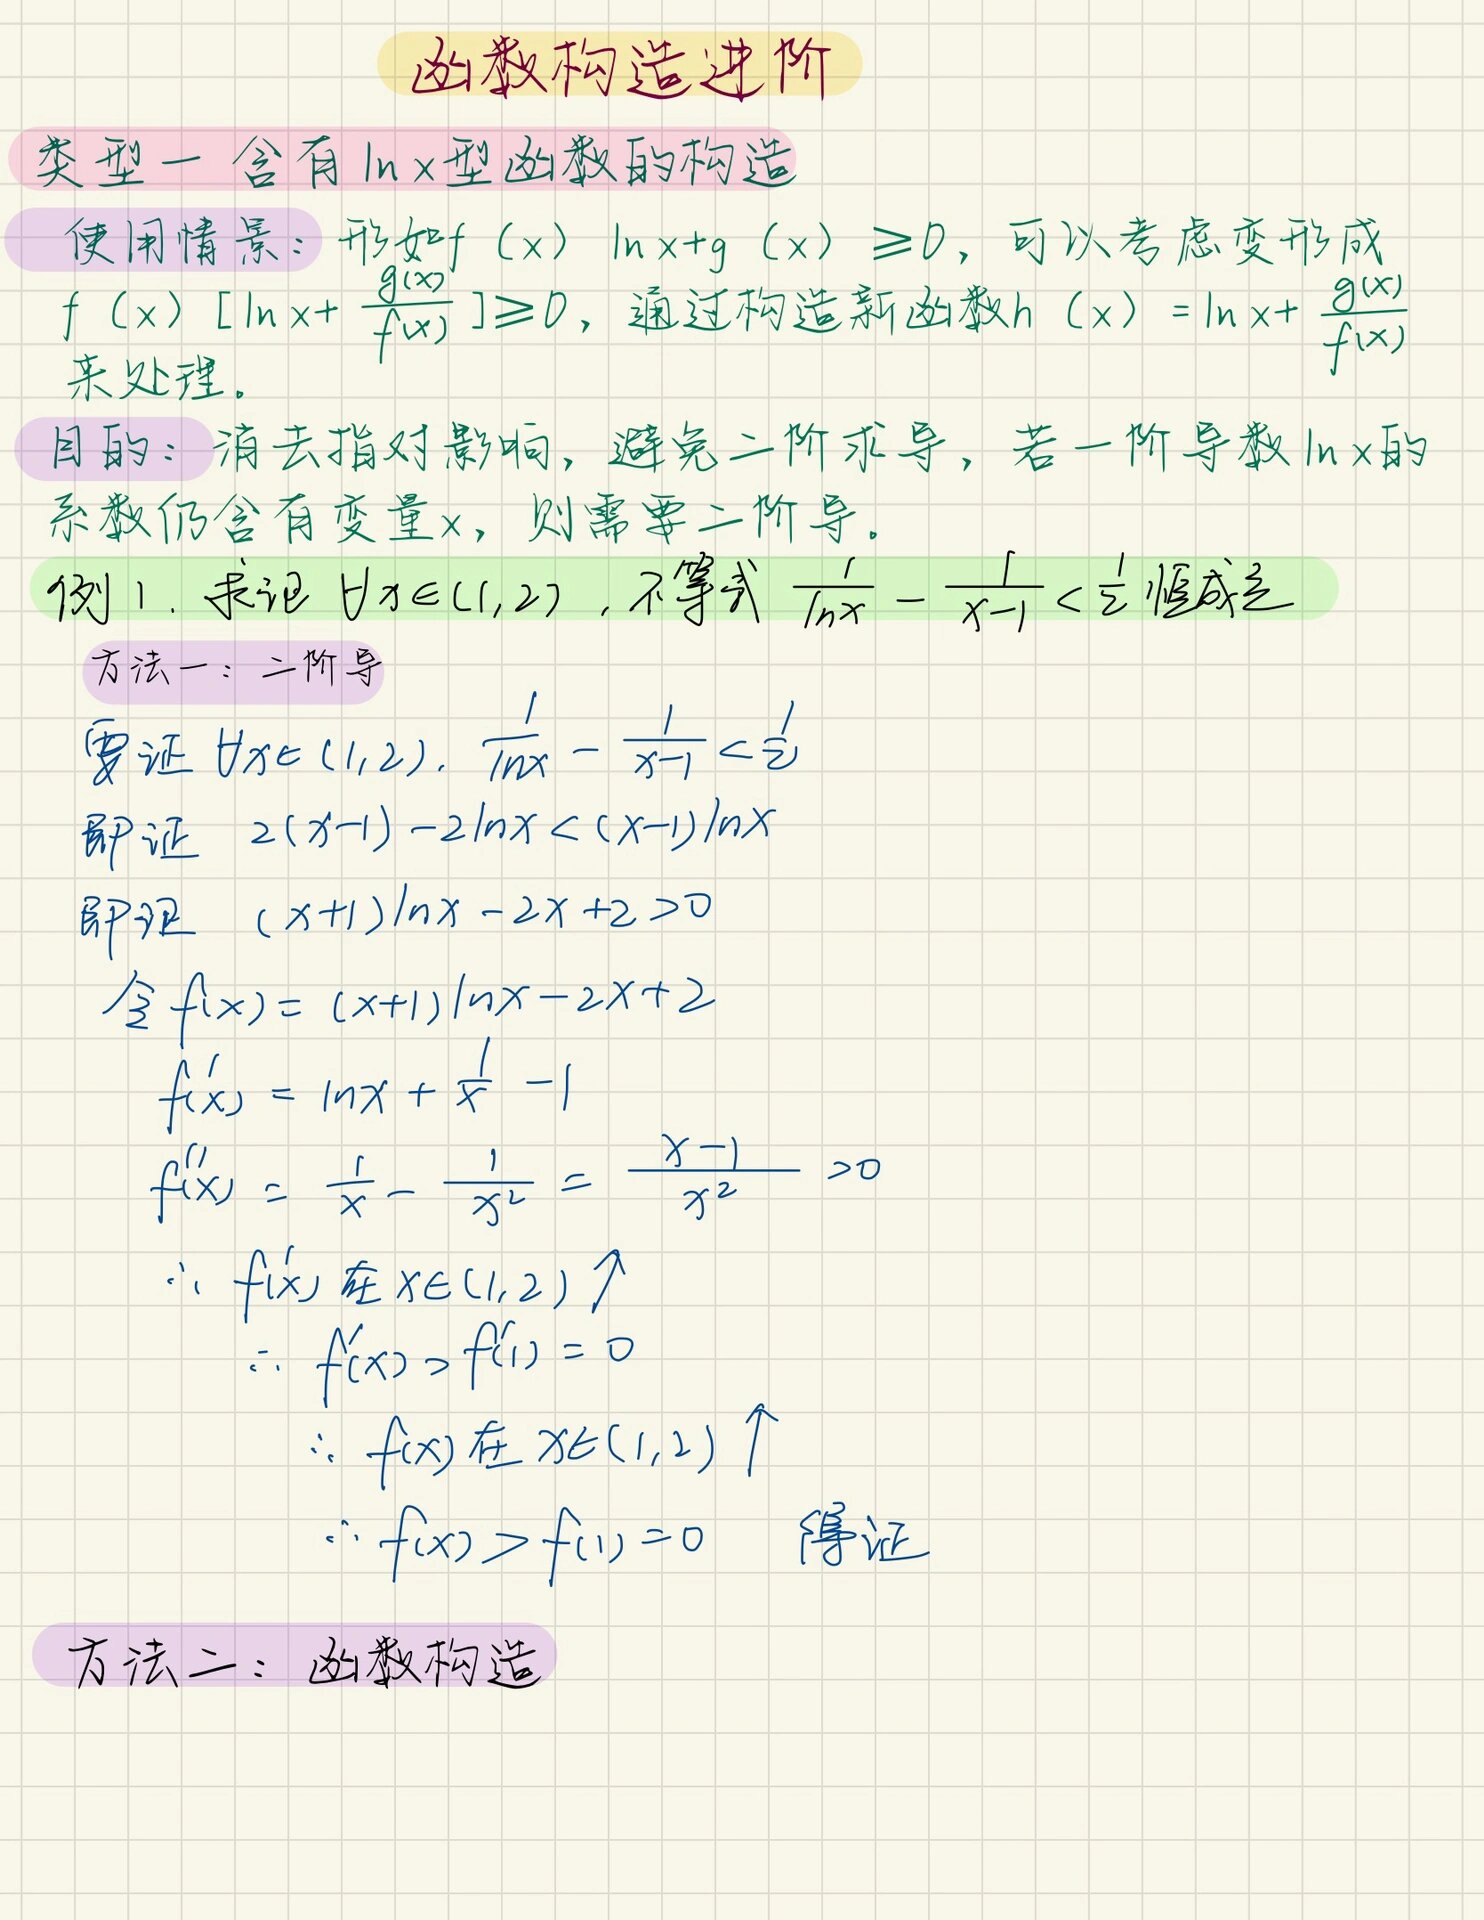 函数构造进阶
类型一 含有lnx型函数的构造
使用情景：形如f（x）lnx+g（x）≥0，可以考虑变形成
f（x）[lnx+ g(x)/f(x) ]≥0，通过构造新函数h（x）=lnx+ g(x)/f(x)
来处理。
目的：消去指对影响，避免二阶求导，若一阶导数lnx的
系数仍含有变量x，则需要二阶导。
例1. 求证 ∀x∈(1,2)，不等式 1/lnx - 1/(x-1) < 1/2 恒成立
方法一：二阶导
要证 ∀x∈(1,2). 1/lnx - 1/(x-1) < 1/2
即证 2(x-1)-2lnx<(x-1)lnx
即证 (x+1)lnx-2x+2>0
令f(x)=(x+1)lnx-2x+2
f'(x) = lnx + 1/x -1
f''(x) = 1/x - 1/x² = (x-1)/x² >0
∴ f'(x) 在 x∈(1,2) ↑
∴ f'(x)>f'(1)=0
∴ f(x) 在 x∈(1,2) ↑
∴ f(x)>f(1)=0 得证
方法二：函数构造